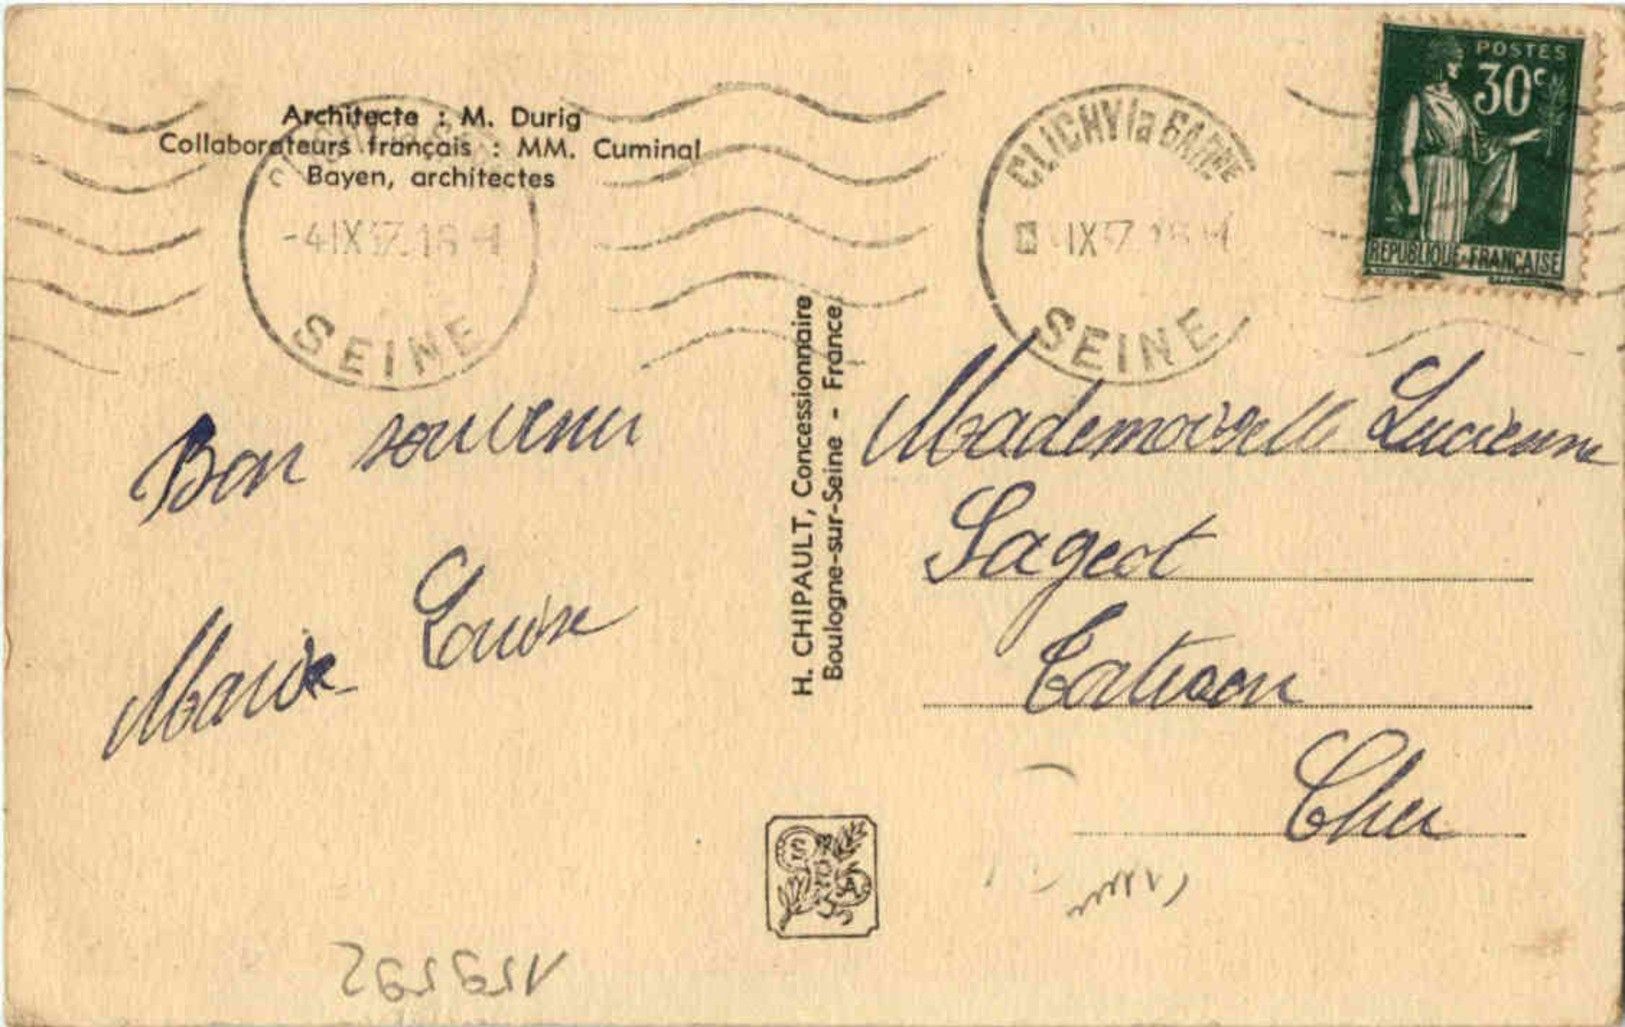 Architecte : M. Durig
Collaborateurs français : MM. Cuminal
Bayen, architectes
-4 IX 37. 18 H
SEINE
CLICHY la GARENNE
IX 37
SEINE
POSTES
30c
REPUBLIQUE FRANÇAISE
Bon souvenir
Marie Louise
H. CHIPAULT, Concessionnaire
Boulogne-sur-Seine - France
Mademoiselle Lucienne
Sageot
Cher